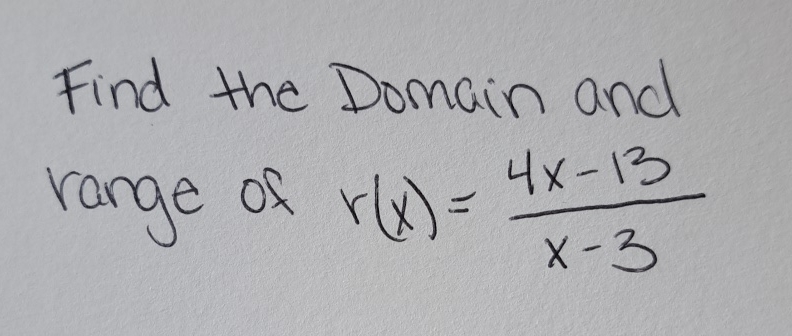 Find the Domain and
range of r(x) = \frac{4x-13}{x-3}